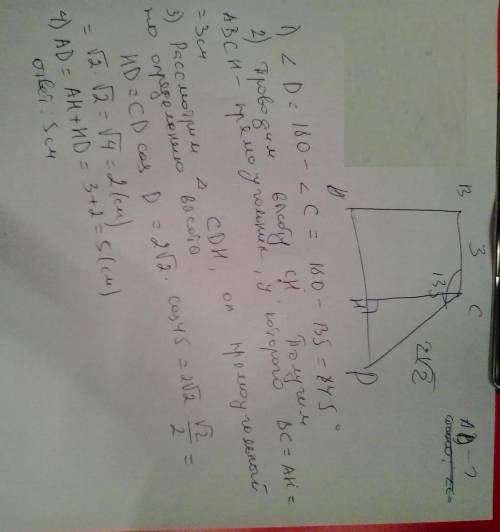 AD - ?
B 3 C
135
2√2
A H D
1) ∠D = 180 - ∠C = 180 - 135 = 45°
2) Проводим высоту CH. Получим
ABCH - прямоугольник, у которого BC = AH =
= 3 см
3) Рассмотрим Δ CDH, он прямоугольный
по определению высота.
HD = CD cos D = 2√2 · cos 45 = 2√2 √2/2 =
= √2 · √2 = √4 = 2 (см)
4) AD = AH + HD = 3 + 2 = 5 (см)
ответ: 5 см